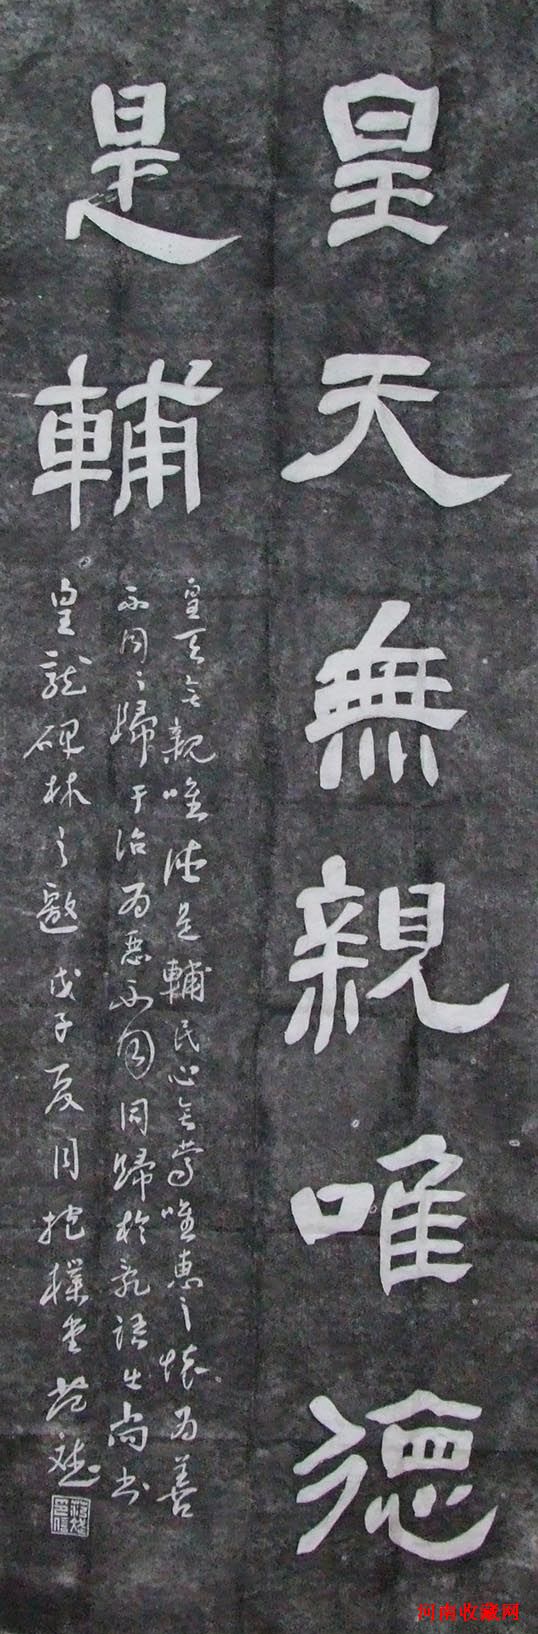 皇天無親唯德
是輔
皇天无親唯德是輔民心无常唯惠之懷为善
不同〻歸于治为惡不同同歸於亂語出尚书
皇龍碑林之邀戊子夏月抱樸堂
河南收藏网